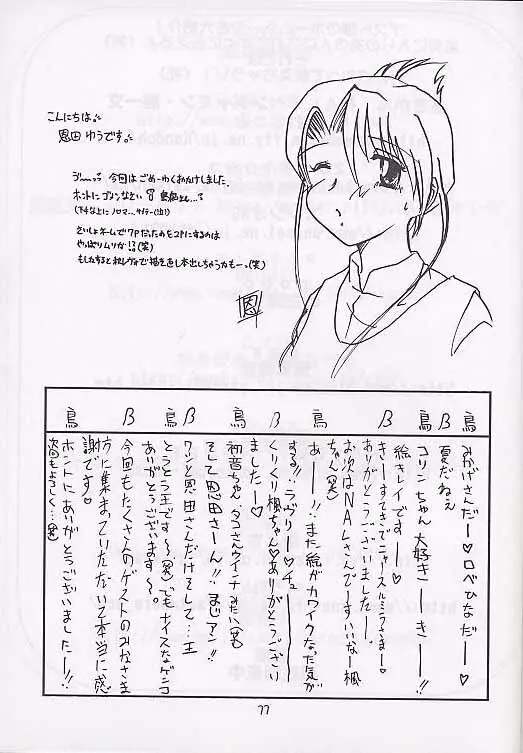 こんにちは。
恩田 ゆうです。
う〜〜っ 今回はごめーゆくおかけしました。
ホントにゴメンなさい 鳥猫さん…っ
(下手な上にノロマ…サイテー(泣))
さいしょネームで7Pだったのを3Pにするのは
やっぱりムリか!?(笑)
もしかするとおレヴォで描き直し本出しちゃうかもー。(笑)
恩
鳥 みかげさんだー♡ロベひなだー♡
β 夏だねぇ
鳥 コリンちゃん大好きーきー!!
β 絵キレイですー♡
きーすてきでニャースルララまー♡
ありがとうございましたー♡
お次はNALさんでーすいなー楓
ちゃん(笑)
鳥 あー!!また絵がカワイクなった気が
する!!ラヴリー♡チュー
β くりくり楓ちゃん♡ありがとうござい
ましたー♡
鳥 初音ちゃん、タコさんウィンナみたい(笑)
そして恩田さーん!!まじアン!!
β ワンと恩田さんだけそして…王
鳥 とうとう王です〜(笑)でもナイスなゲンコ
ありがとうございます〜。
β 今回もたくさんのゲストのみなさま
方に集まっていただいて本当に感
謝です♡
鳥 ホントにありがとうございましたー!!
次回もよろしく…(笑)
77